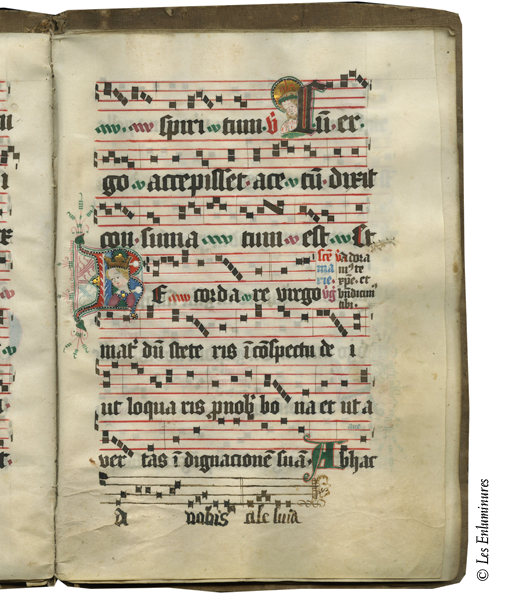 spiri tum v̄ Cū er
go accepisset ace tū dixit
con suma tum est Et
RE corda re virgo
mat͛ dū stete ris ī cōspectu de i
ut loqua ris ꝓnob̄ bo na et ut a
ver tas ī dignacionē suā Ab hac
A nobis alle luia
© Les Enluminures